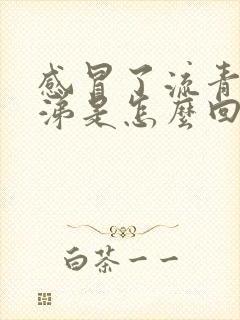 感冒了流青
涕是怎麼回
白茶一一